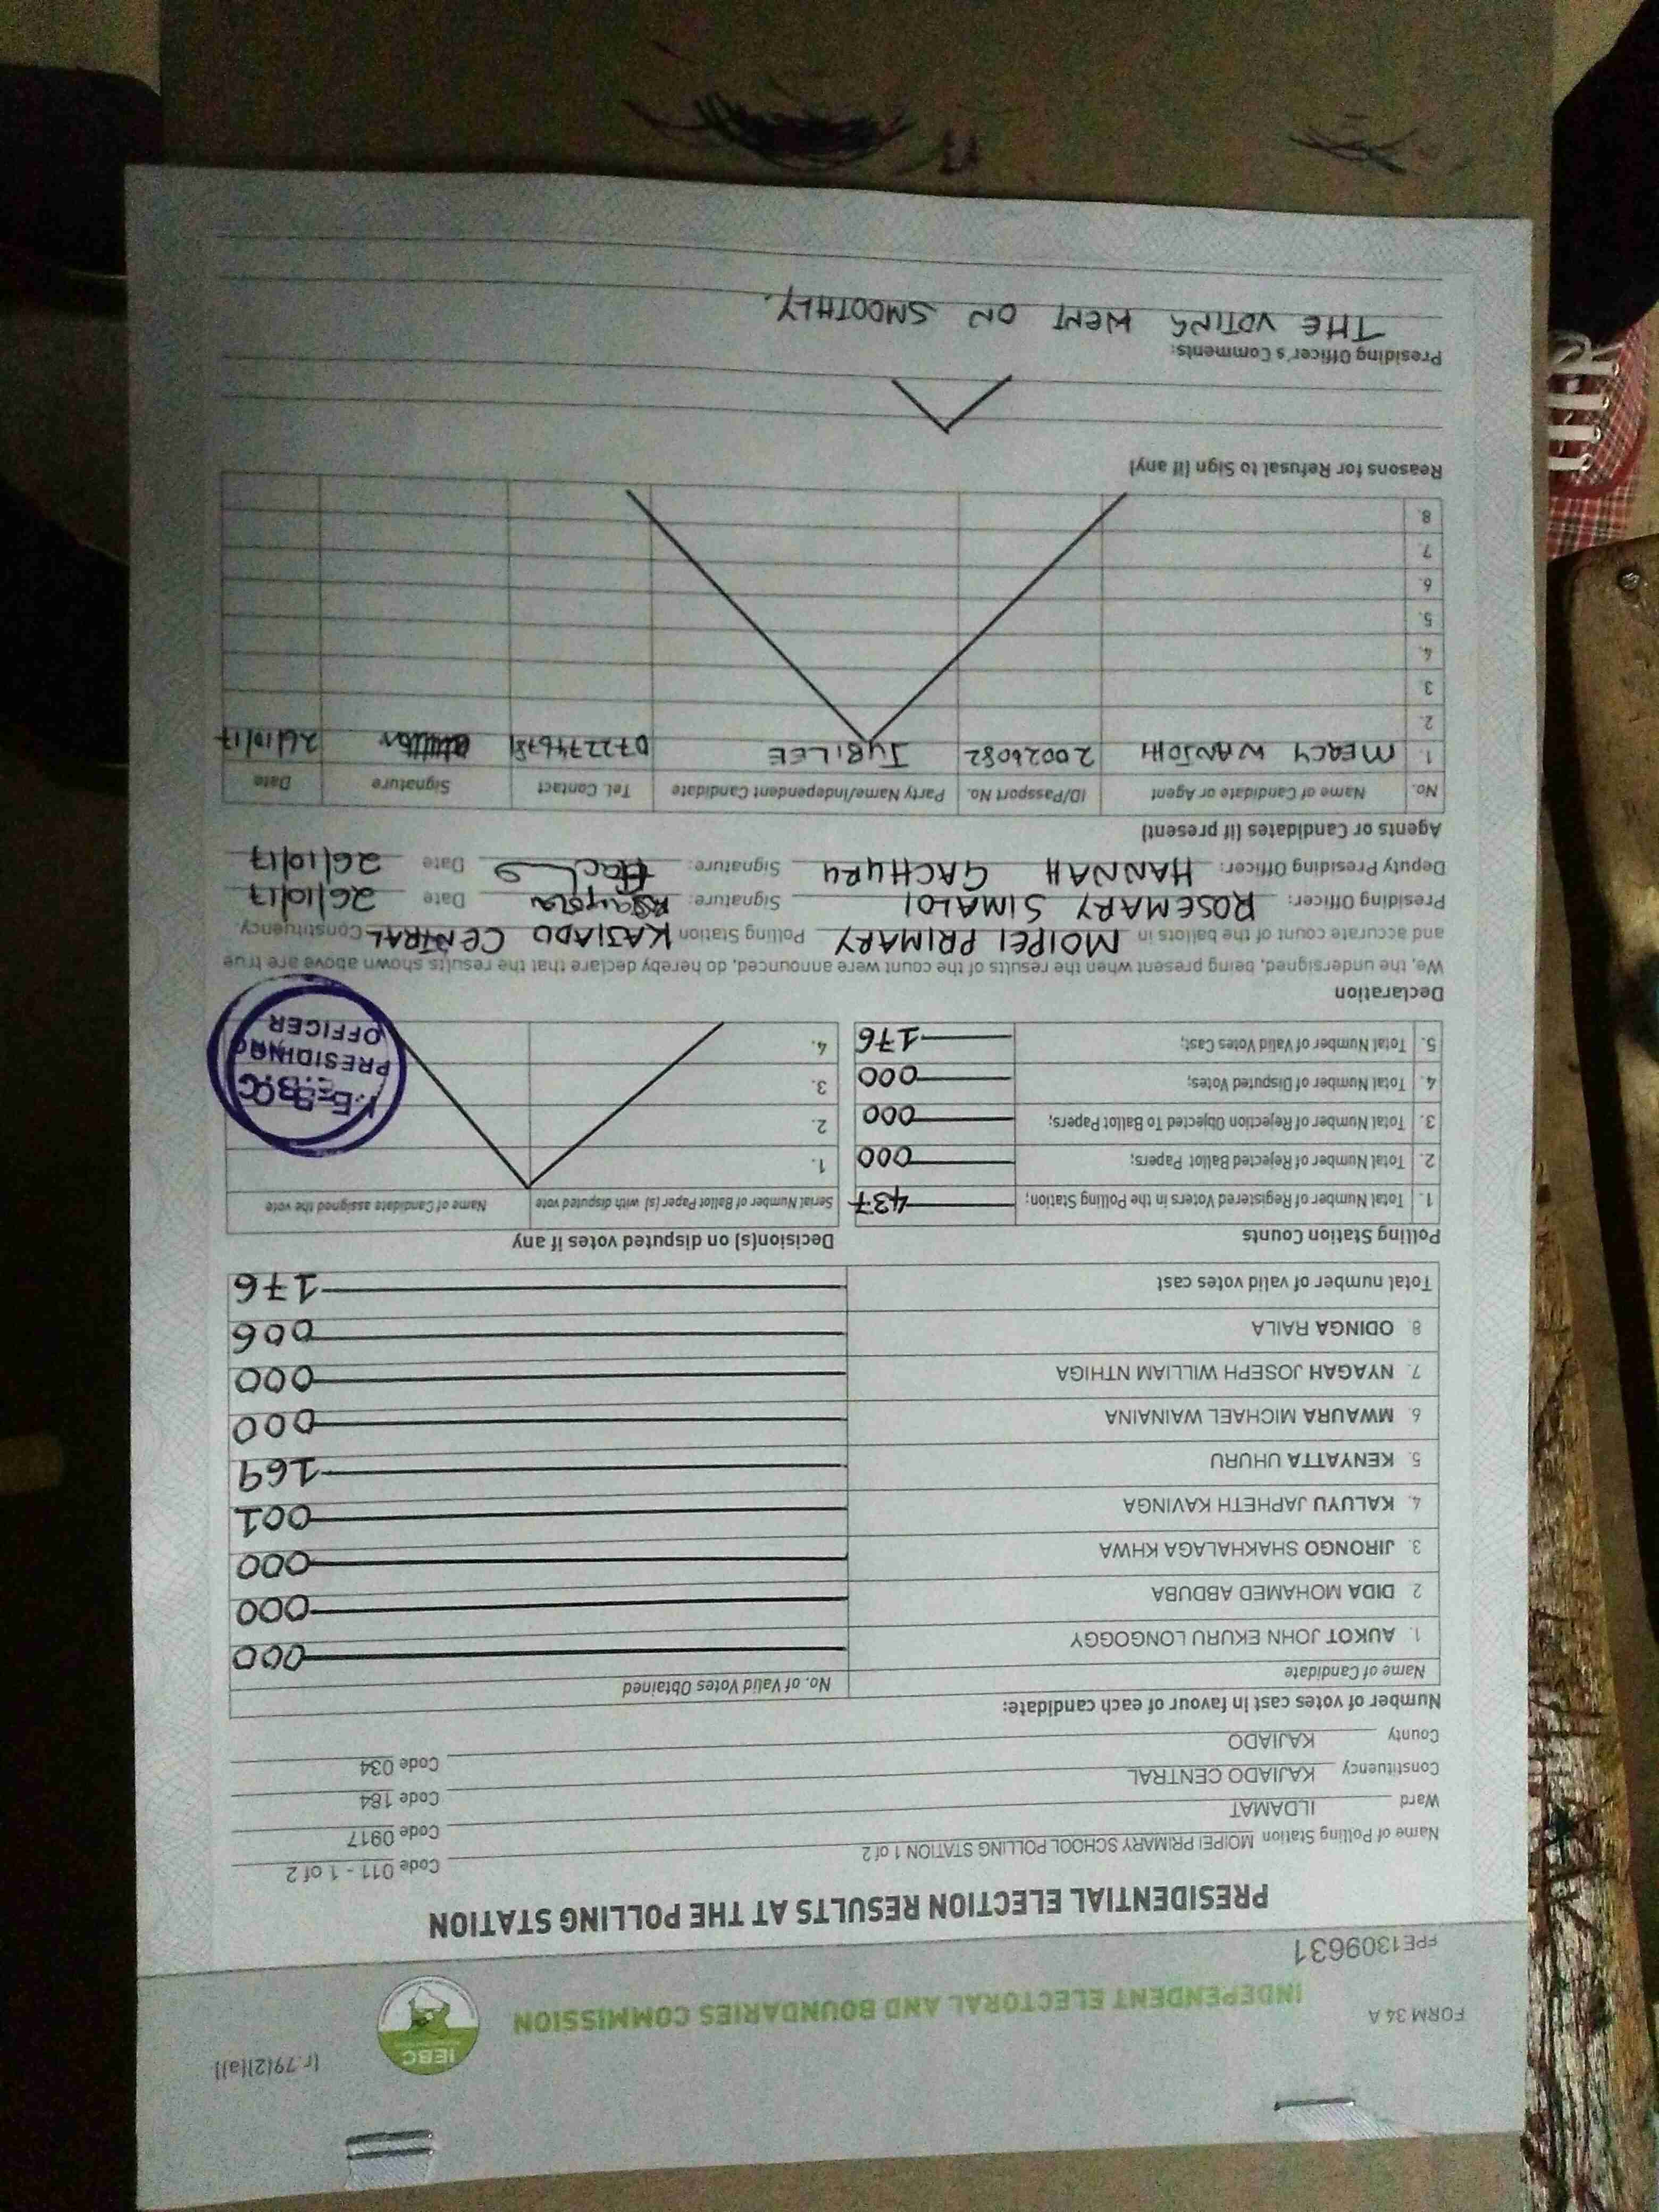 FORM 34 A
[r.79(2)(a)]
INDEPENDENT ELECTORAL AND BOUNDARIES COMMISSION
IEBC
FPE1309631
PRESIDENTIAL ELECTION RESULTS AT THE POLLING STATION
Name of Polling Station MOIPEI PRIMARY SCHOOL POLLING STATION 1 of 2 Code 011 - 1 of 2
Ward ILDAMAT Code 0917
Constituency KAJIADO CENTRAL Code 184
County KAJIADO Code 034
Number of votes cast in favour of each candidate:
Name of Candidate No. of Valid Votes Obtained
1. AUKOT JOHN EKURU LONGOGGY 000
2 DIDA MOHAMED ABDUBA 000
3. JIRONGO SHAKHALAGA KHWA 000
4. KALUYU JAPHETH KAVINGA 001
5. KENYATTA UHURU 169
6. MWAURA MICHAEL WAINAINA 000
7. NYAGAH JOSEPH WILLIAM NTHIGA 000
8 ODINGA RAILA 006
Total number of valid votes cast 176
Polling Station Counts
1. Total Number of Registered Voters in the Polling Station; 437
2. Total Number of Rejected Ballot Papers; 000
3. Total Number of Rejection Objected To Ballot Papers; 000
4. Total Number of Disputed Votes; 000
5. Total Number of Valid Votes Cast; 176
Decision(s) on disputed votes if any
Serial Number of Ballot Paper (s) with disputed vote Name of Candidate assigned the vote
1.
2.
3.
4.
I.E.B.C
PRESIDING
OFFICER
Declaration
We, the undersigned, being present when the results of the count were announced, do hereby declare that the results shown above are true
and accurate count of the ballots in MOIPEI PRIMARY Polling Station KAJIADO CENTRAL Constituency.
Presiding Officer: ROSEMARY SIMALOI Signature: Date 26/10/17
Deputy Presiding Officer: HANNAH GACHURU Signature: Date 26/10/17
Agents or Candidates (if present)
No. Name of Candidate or Agent ID/Passport No. Party Name/Independent Candidate Tel. Contact Signature Date
1. MERCY WANJOHI 20026082 JUBILEE 26/10/17
2.
3
4.
5.
6.
7
8.
Reasons for Refusal to Sign (if any)
Presiding Officer's Comments:
THE VOTING WENT ON SMOOTHLY.